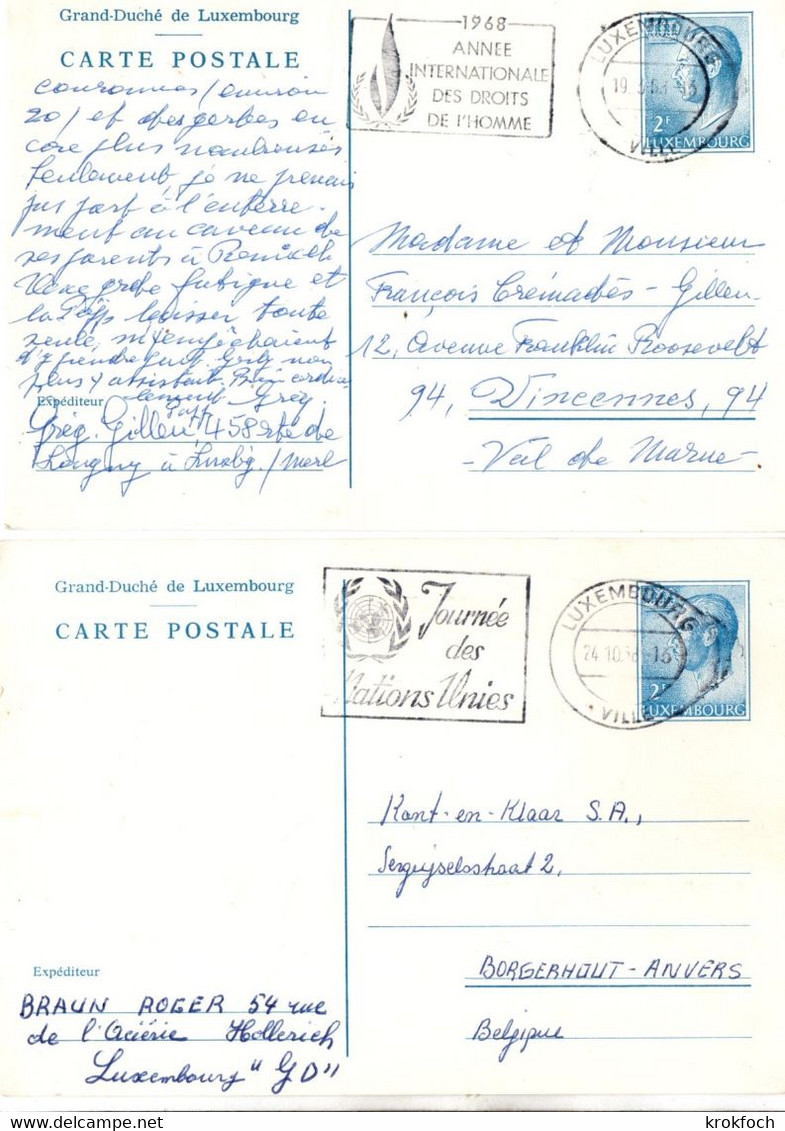 Grand-Duché de Luxembourg
CARTE POSTALE
1968
ANNEE
INTERNATIONALE
DES DROITS
DE L'HOMME
LUXEMBOURG
VILLE
2F
LUXEMBOURG
couronnes/environ
20/et des gerbes en
core plus nombreuses
seulement je ne prenais
pas part à l'enterre-
ment au caveau de
ses parents à Remich
fatigue et
la laisser toute
seule, m'empêchaient
d'y prendre part. non
plus y assistent. Bien cordia
lement Greg.
Expéditeur
Grég. Gillen, 458 rte de
Longwy à Luxbg./Merl
Madame et Monsieur
François Crémadès-Gillen
12, Avenue Franklin Roosevelt
94, Vincennes, 94
-Val de Marne-
Grand-Duché de Luxembourg
CARTE POSTALE
Journée
des
Nations Unies
LUXEMBOURG
24.10.
VILLE
2F
LUXEMBOURG
Kant-en-Klaar S.A.,
Sergeyselsstraat 2,
BORGERHOUT-ANVERS
Belgique
Expéditeur
BRAUN ROGER 54 rue
de l'Aciérie Hollerich
Luxembourg "GD"
www.delcampe.net
krokfoch